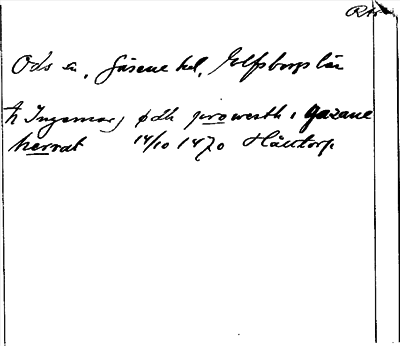 RAp
Ods sn, Gäsene hd, Elfsborgs län
h Ingemarj pdk prowesth i gazane
herrat 14/10 1470 Hälltorp